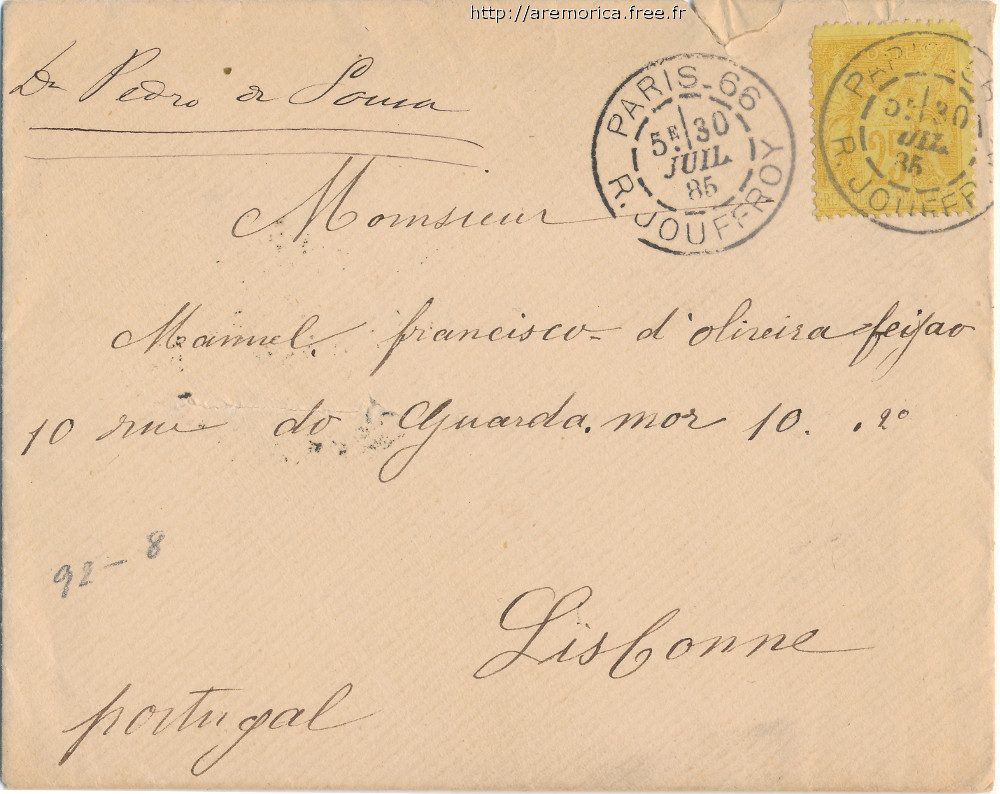 http://aremorica.free.fr
Dr Pedro de Sousa
PARIS_66
5E 30
JUIL.
85
R. JOUFFROY
25
30
JUIL
85
R. JOUFFR
Monsieur
Manuel francisco d'oliveira feijao
10 rue do Guarda.mor 10. .2º
92-8
Lisbonne
portugal